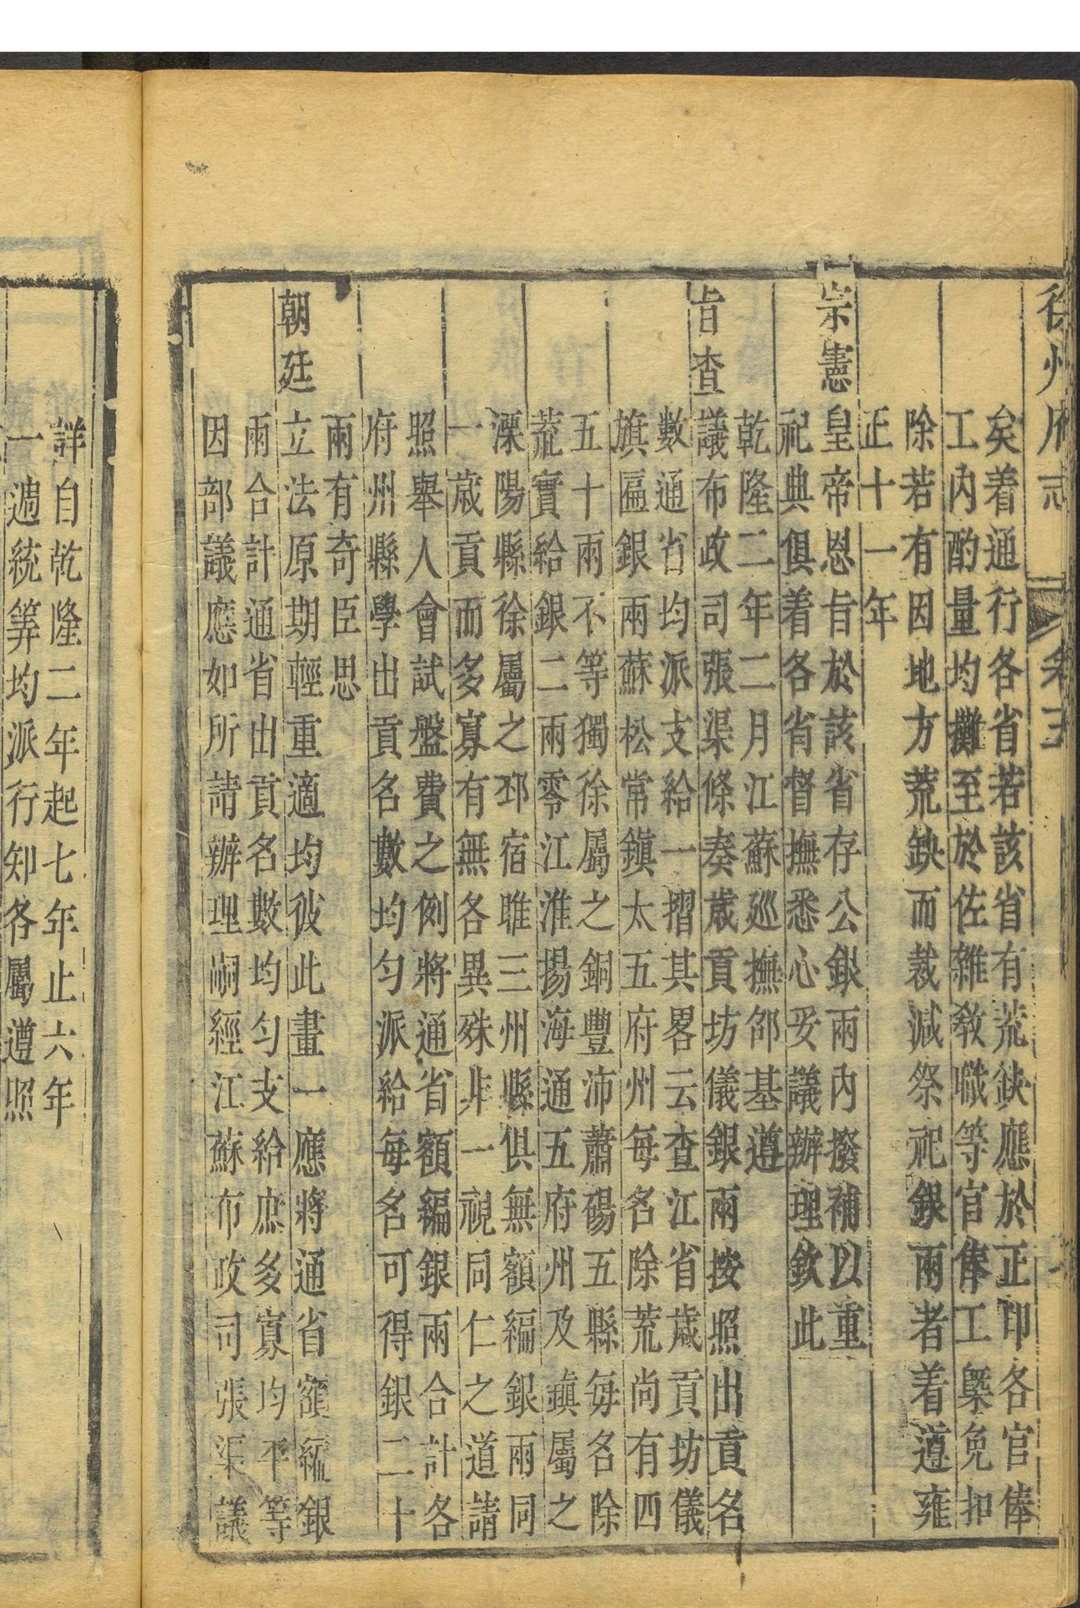 徐州府志 卷五
矣着通行各省若該省有荒缺應於正印各官俸
工內酌量均攤至於佐雜教職等官俸工槩免扣
除若有因地方荒缺而裁減祭祀銀兩者着遵雍
正十一年
宗憲皇帝恩旨於該省存公銀兩內撥補以重
祀典俱着各省督撫悉心妥議辦理欽此
乾隆二年二月江蘇廵撫邵基遵
旨查議布政司張渠條奏歲貢坊儀銀兩按照出貢名
數通省均派支給一摺其畧云查江省歲貢坊儀
旗匾銀兩蘇松常鎮太五府州每名除荒尚有四
五十兩不等獨徐屬之銅豐沛蕭碭五縣每名除
荒實給銀二兩零江淮揚海通五府州及鎮屬之
溧陽縣徐屬之邳宿睢三州縣俱無額編銀兩同
一歲貢而多寡有無各異殊非一視同仁之道請
照舉人會試盤費之例將通省額編銀兩合計各
府州縣學出貢名數均勻派給每名可得銀二十
兩有奇臣思
朝廷立法原期輕重適均彼此畫一應將通省額編銀
兩合計通省出貢名數均勻支給庶多寡均平等
因部議應如所請辦理嗣經江蘇布政司張渠議
詳自乾隆二年起七年止六年
一週統筭均派行知各屬遵照